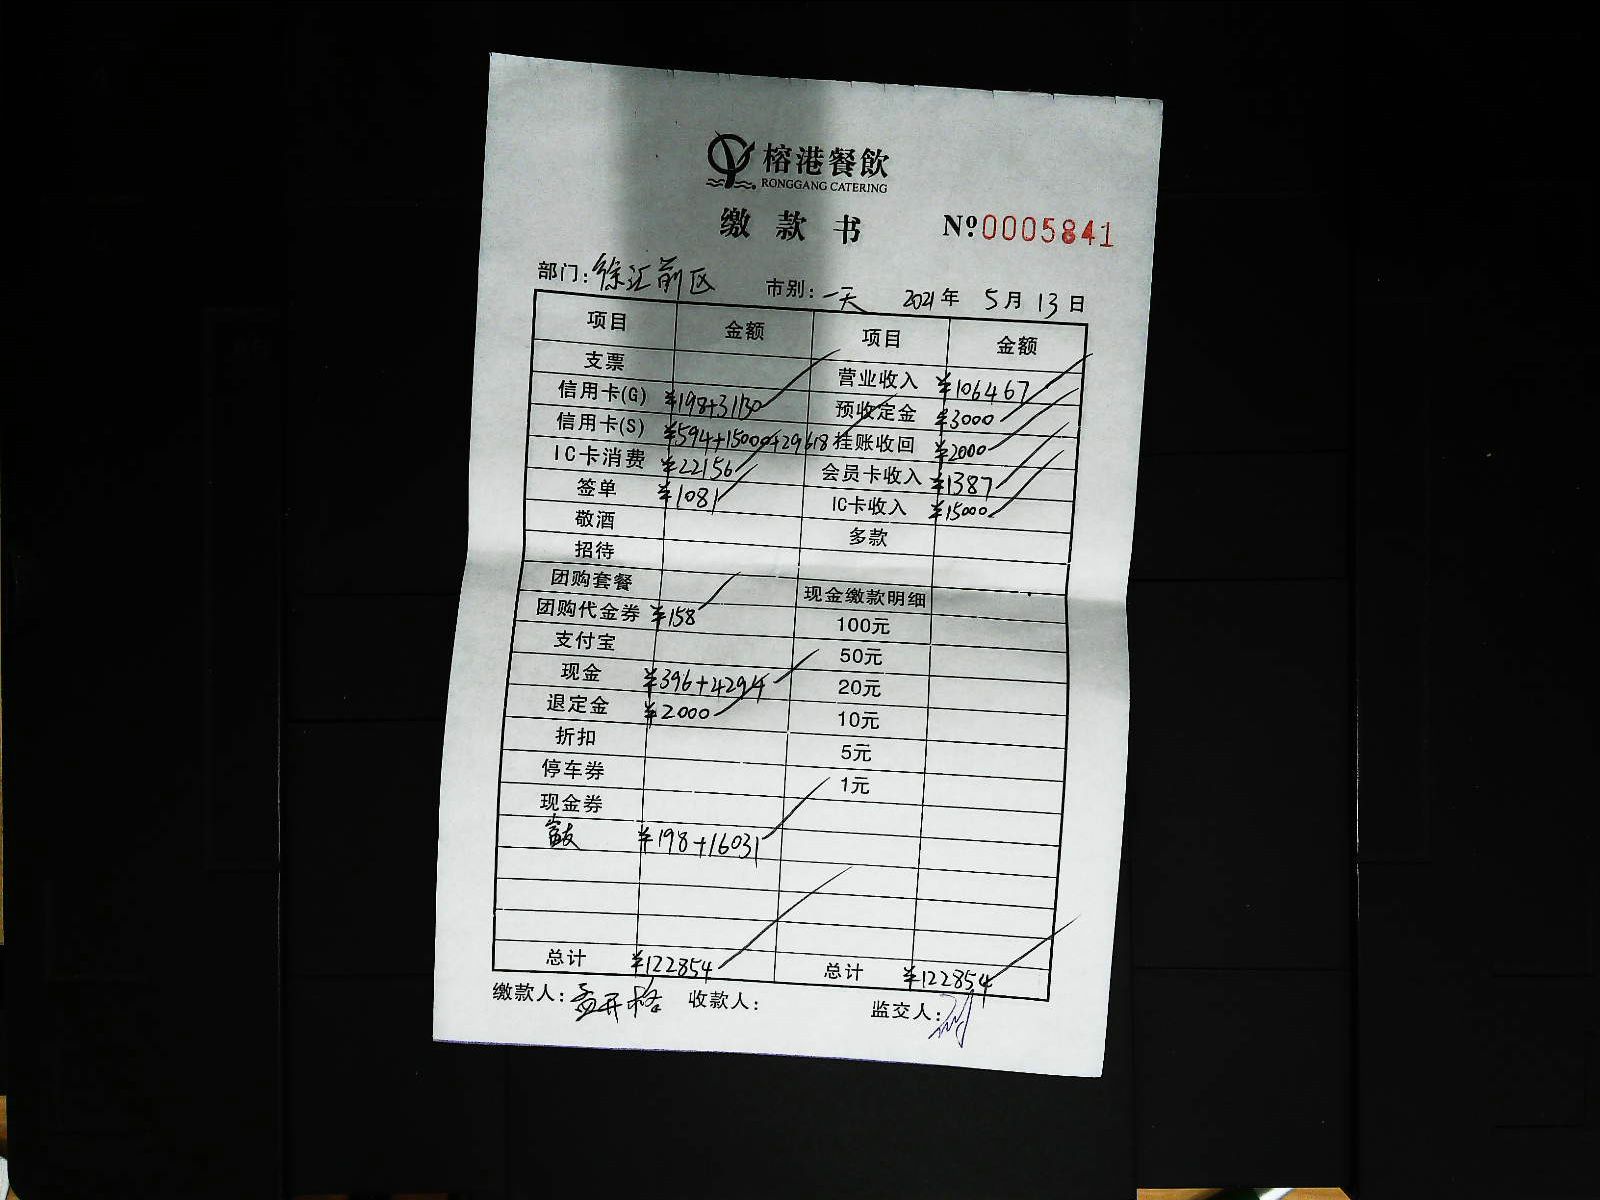 榕港餐飲
RONGGANG CATERING
缴款书 №0005841
部门: 徐汇前区 市别: 一天 2021年 5月 13日
项目 金额 项目 金额
支票 营业收入 ¥106467
信用卡(G) ¥198+31130 预收定金 ¥3000
信用卡(S) ¥594+15000+29618 挂账收回 ¥2000
IC卡消费 ¥22156 会员卡收入 ¥1387
签单 ¥1081 IC卡收入 ¥15000
敬酒 多款
招待
团购套餐 现金缴款明细
团购代金券 ¥158 100元
支付宝 50元
现金 ¥396+4294 20元
退定金 ¥2000 10元
折扣 5元
停车券 1元
现金券
富友 ¥198+16031
总计 ¥122854 总计 ¥122854
缴款人: 收款人: 监交人: